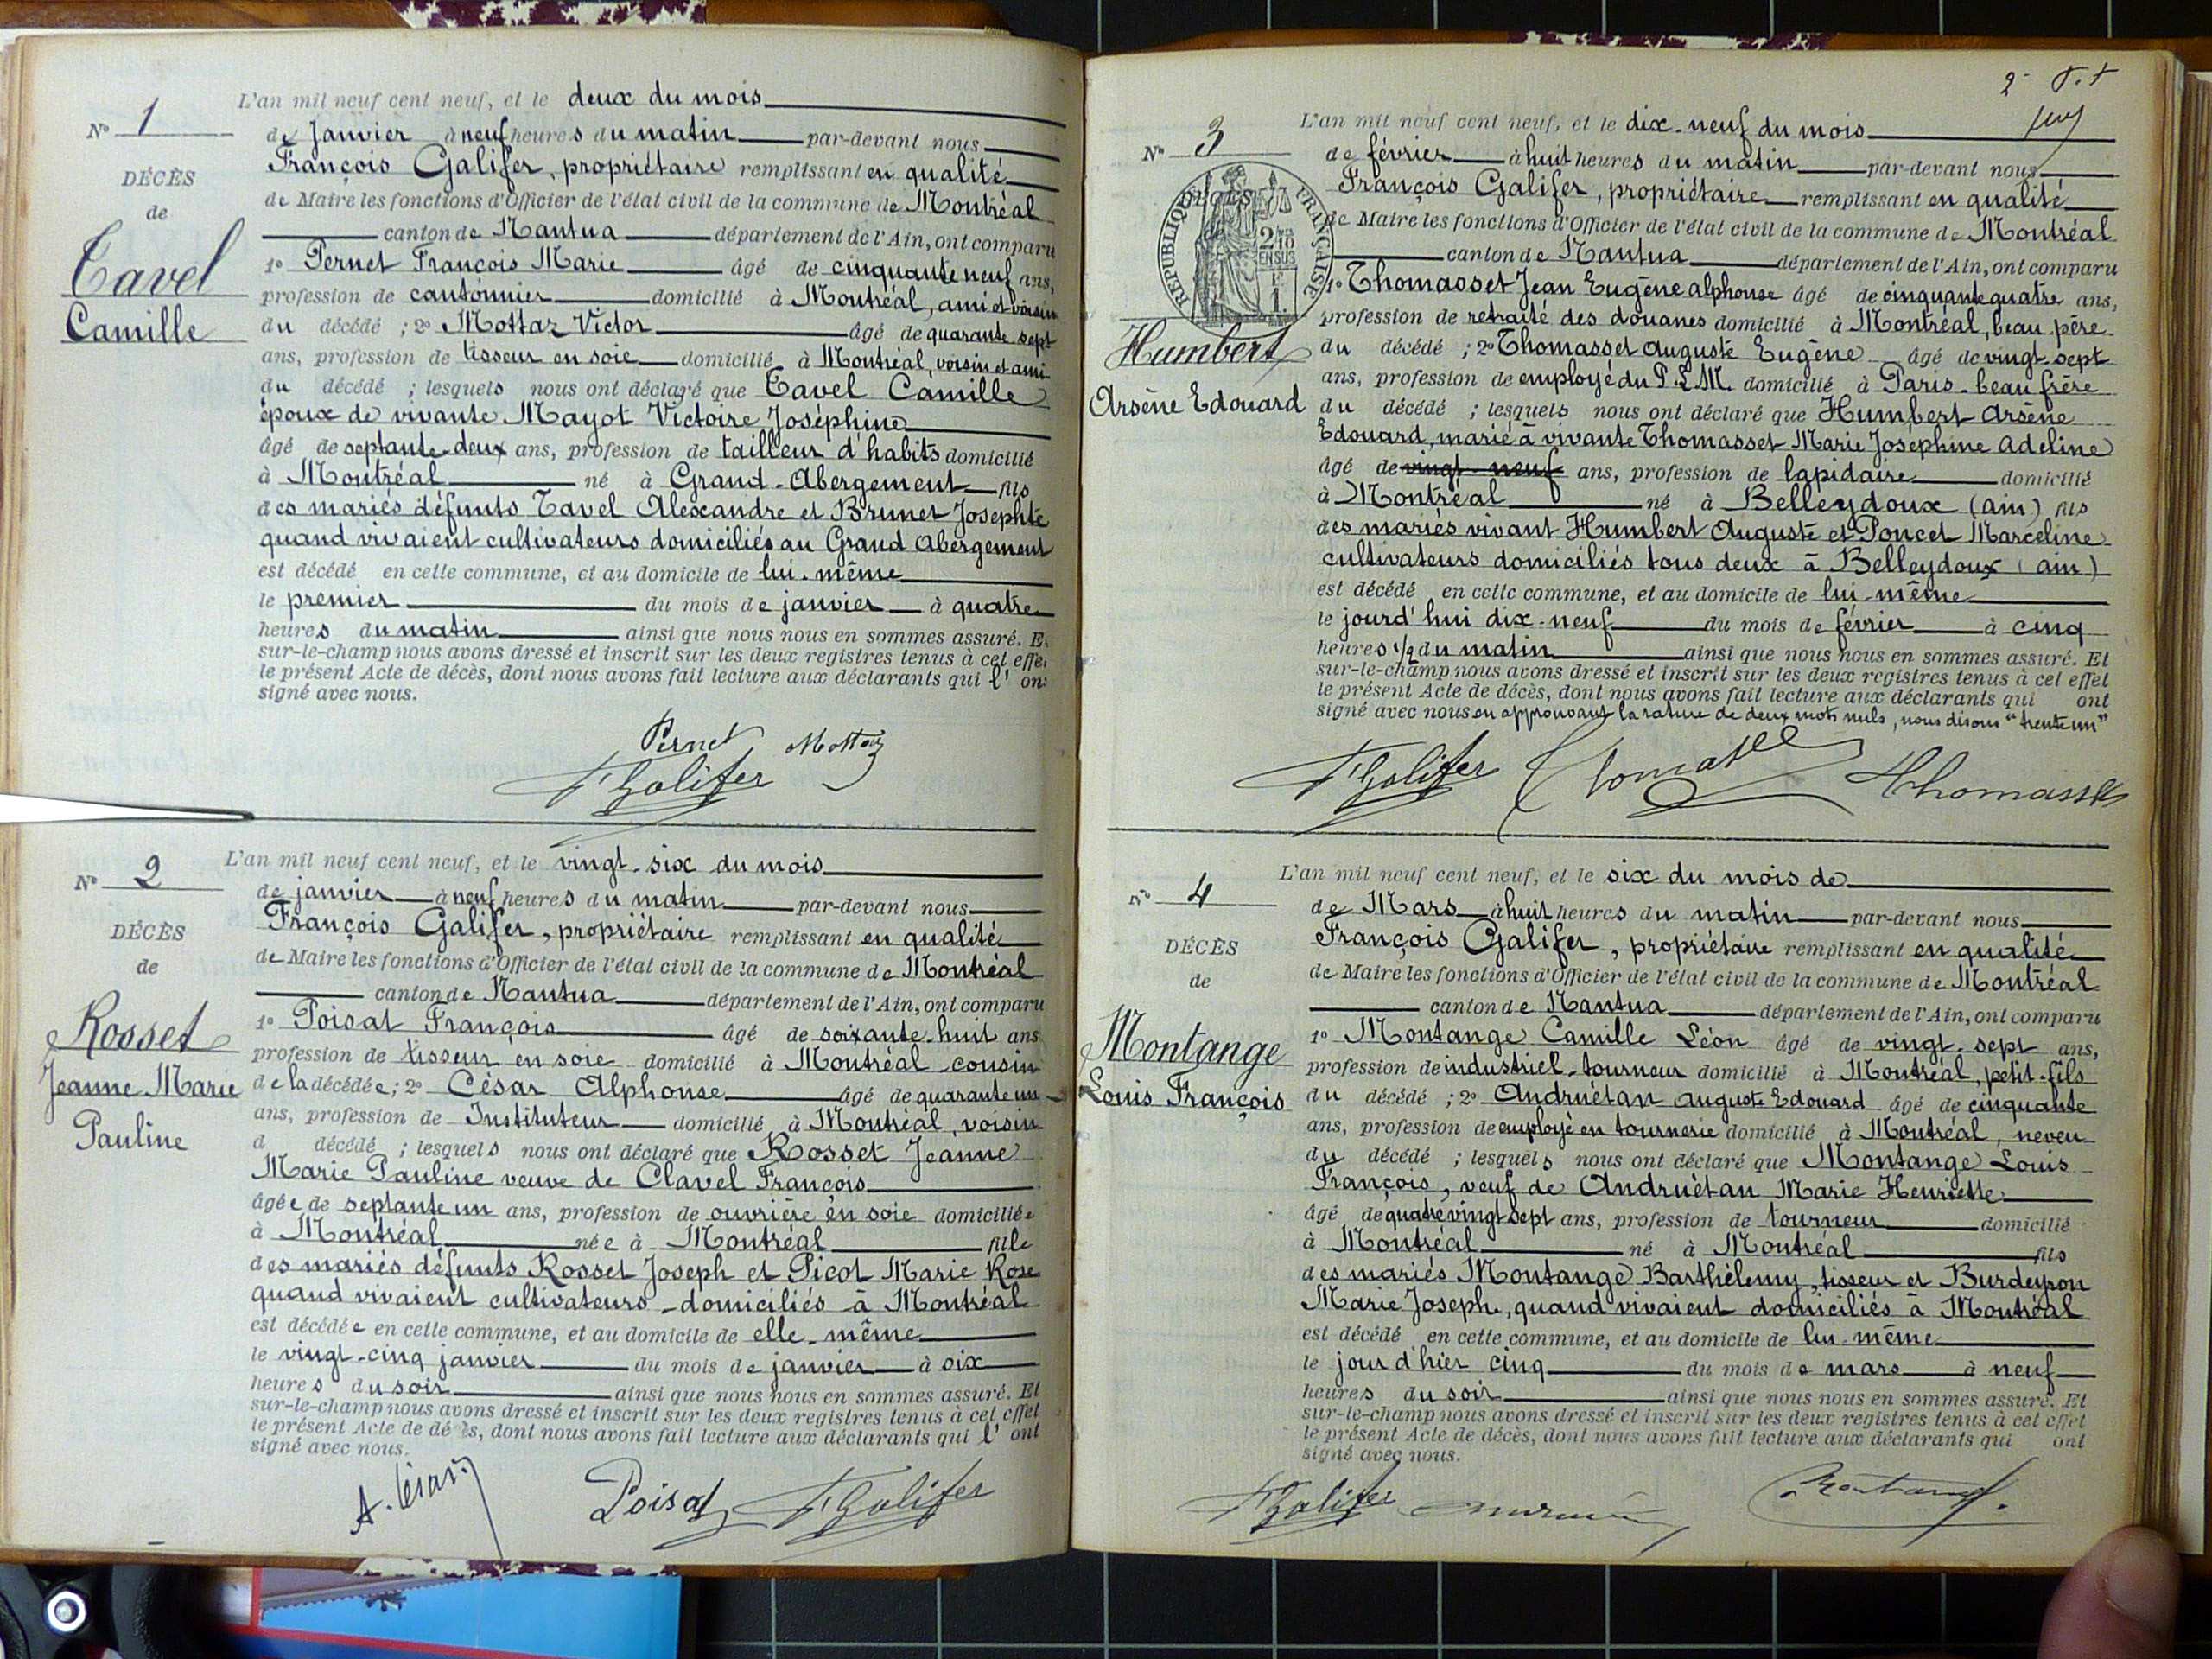 N° 1
DÉCÈS
de
Tavel
Camille
L'an mil neuf cent neuf, et le deux du mois
de Janvier à neuf heures du matin par-devant nous
François Galifer, propriétaire remplissant en qualité
de Maire les fonctions d'Officier de l'état civil de la commune de Montréal
canton de Nantua département de l'Ain, ont comparu
1° Pernet François Marie âgé de cinquante neuf ans,
profession de cantonnier domicilié à Montréal, ami et voisin
du décédé ; 2° Mottaz Victor âgé de quarante sept
ans, profession de tisseur en soie domicilié à Montréal, voisin et ami
du décédé ; lesquels nous ont déclaré que Tavel Camille
époux de vivante Mayot Victoire Joséphine
âgé de septante-deux ans, profession de tailleur d'habits domicilié
à Montréal né à Grand-Abergement fils
des mariés défunts Tavel Alexandre et Brunet Josephte
quand vivaient cultivateurs domiciliés au Grand Abergement
est décédé en cette commune, et au domicile de lui-même
le premier du mois de janvier à quatre
heures du matin ainsi que nous nous en sommes assuré. E
sur-le-champ nous avons dressé et inscrit sur les deux registres tenus à cet effe
le présent Acte de décès, dont nous avons fait lecture aux déclarants qui l' on
signé avec nous.
Pernet Mottaz
F Galifer
N° 2
DÉCÈS
de
Rosset
Jeanne Marie
Pauline
L'an mil neuf cent neuf, et le vingt-six du mois
de janvier à neuf heures du matin par-devant nous
François Galifer, propriétaire remplissant en qualité
de Maire les fonctions d'Officier de l'état civil de la commune de Montréal
canton de Nantua département de l'Ain, ont comparu
1° Poisat François âgé de soixante-huit ans
profession de tisseur en soie domicilié à Montréal cousin
de la décédée ; 2° César Alphonse âgé de quarante un
ans, profession de Instituteur domicilié à Montréal, voisin
d décédé ; lesquels nous ont déclaré que Rosset Jeanne
Marie Pauline veuve de Clavel François
âgée de septante un ans, profession de ouvrière en soie domiciliée
à Montréal née à Montréal fille
des mariés défunts Rosset Joseph et Picot Marie Rose
quand vivaient cultivateurs - domiciliés à Montréal
est décédée en cette commune, et au domicile de elle-même
le vingt-cinq janvier du mois de janvier à six
heures du soir ainsi que nous nous en sommes assuré. Et
sur-le-champ nous avons dressé et inscrit sur les deux registres tenus à cet effet
le présent Acte de décès, dont nous avons fait lecture aux déclarants qui l' ont
signé avec nous.
A. César Poisat F Galifer
2
N° 3
RÉPUBLIQUE FRANÇAISE
2/10 EN SUS
Humbert
Arsène Edouard
L'an mil neuf cent neuf, et le dix-neuf du mois
de février à huit heures du matin par-devant nous
François Galifer, propriétaire remplissant en qualité
de Maire les fonctions d'Officier de l'état civil de la commune de Montréal
canton de Nantua département de l'Ain, ont comparu
1° Thomasset Jean Eugène alphonse âgé de cinquante quatre ans,
profession de retraité des douanes domicilié à Montréal, beau père
du décédé ; 2° Thomasset Auguste Eugène âgé de vingt-sept
ans, profession de employé du P.L.M. domicilié à Paris - beau frère
du décédé ; lesquels nous ont déclaré que Humbert Arsène
Edouard, marié à vivante Thomasset Marie Josephine Adeline
âgé de vingt-neuf ans, profession de lapidaire domicilié
à Montréal né à Belleydoux (ain) fils
des mariés vivant Humbert Auguste et Poncet Marceline
cultivateurs domiciliés tous deux à Belleydoux (ain)
est décédé en cette commune, et au domicile de lui-même
le jourd'hui dix-neuf du mois de février à cinq
heures 1/2 du matin ainsi que nous nous en sommes assuré. Et
sur-le-champ nous avons dressé et inscrit sur les deux registres tenus à cet effet
le présent Acte de décès, dont nous avons fait lecture aux déclarants qui ont
signé avec nous en approuvant la rature de deux mots nuls, nous disons "trente un"
F Galifer Thomasset Thomasset
N° 4
DÉCÈS
de
Montange
Louis François
L'an mil neuf cent neuf, et le six du mois de
de Mars à huit heures du matin par-devant nous
François Galifer, propriétaire remplissant en qualité
de Maire les fonctions d'Officier de l'état civil de la commune de Montréal
canton de Nantua département de l'Ain, ont comparu
1° Montange Camille Léon âgé de vingt-sept ans,
profession de industriel-tourneur domicilié à Montréal, petit-fils
du décédé ; 2° Andruétan Auguste Edouard âgé de cinquante
ans, profession de employé en tournerie domicilié à Montréal, neveu
du décédé ; lesquels nous ont déclaré que Montange Louis
François, veuf de Andruétan Marie Henriette
âgé de quatre vingt sept ans, profession de tourneur domicilié
à Montréal né à Montréal fils
des mariés Montange Barthélemy, tisseur et Burdeyron
Marie Joseph, quand vivaient domiciliés à Montréal
est décédé en cette commune, et au domicile de lui-même
le jour d'hier cinq du mois de mars à neuf
heures du soir ainsi que nous nous en sommes assuré. Et
sur-le-champ nous avons dressé et inscrit sur les deux registres tenus à cet effet
le présent Acte de décès, dont nous avons fait lecture aux déclarants qui ont
signé avec nous.
F Galifer Montange